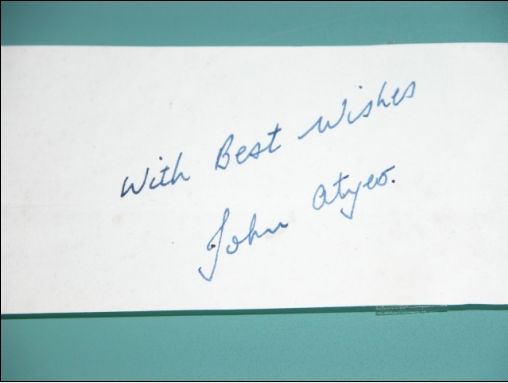 With Best Wishes
John Atyeo.